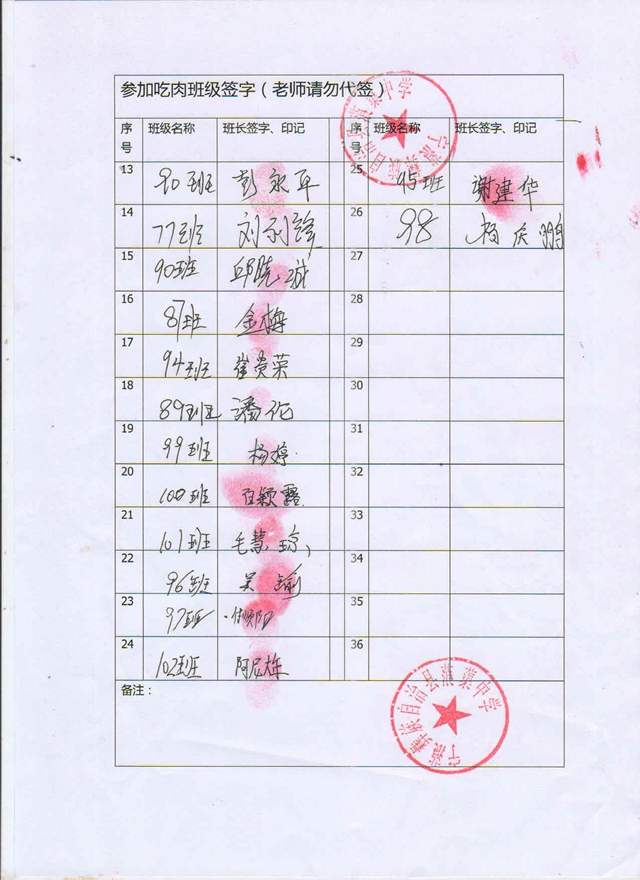 参加吃肉班级签字（老师请勿代签）
序号 班级名称 班长签字、印记 序号 班级名称 班长签字、印记
13 80班 彭永平 25 95班 谢建华
14 77班 刘永锋 26 98 杨庆鹃
15 90班 邱晓诚 27
16 87班 金梅 28
17 94班 崔贵荣 29
18 89班 潘伦 30
19 99班 杨婷 31
20 100班 颖露 32
21 101班 毛慧琼 33
22 96班 吴 34
23 97班 35
24 102班 阿尼 36
备注：
宁蒗彝族自治县蒗蕖中学
宁蒗彝族自治县蒗蕖中学